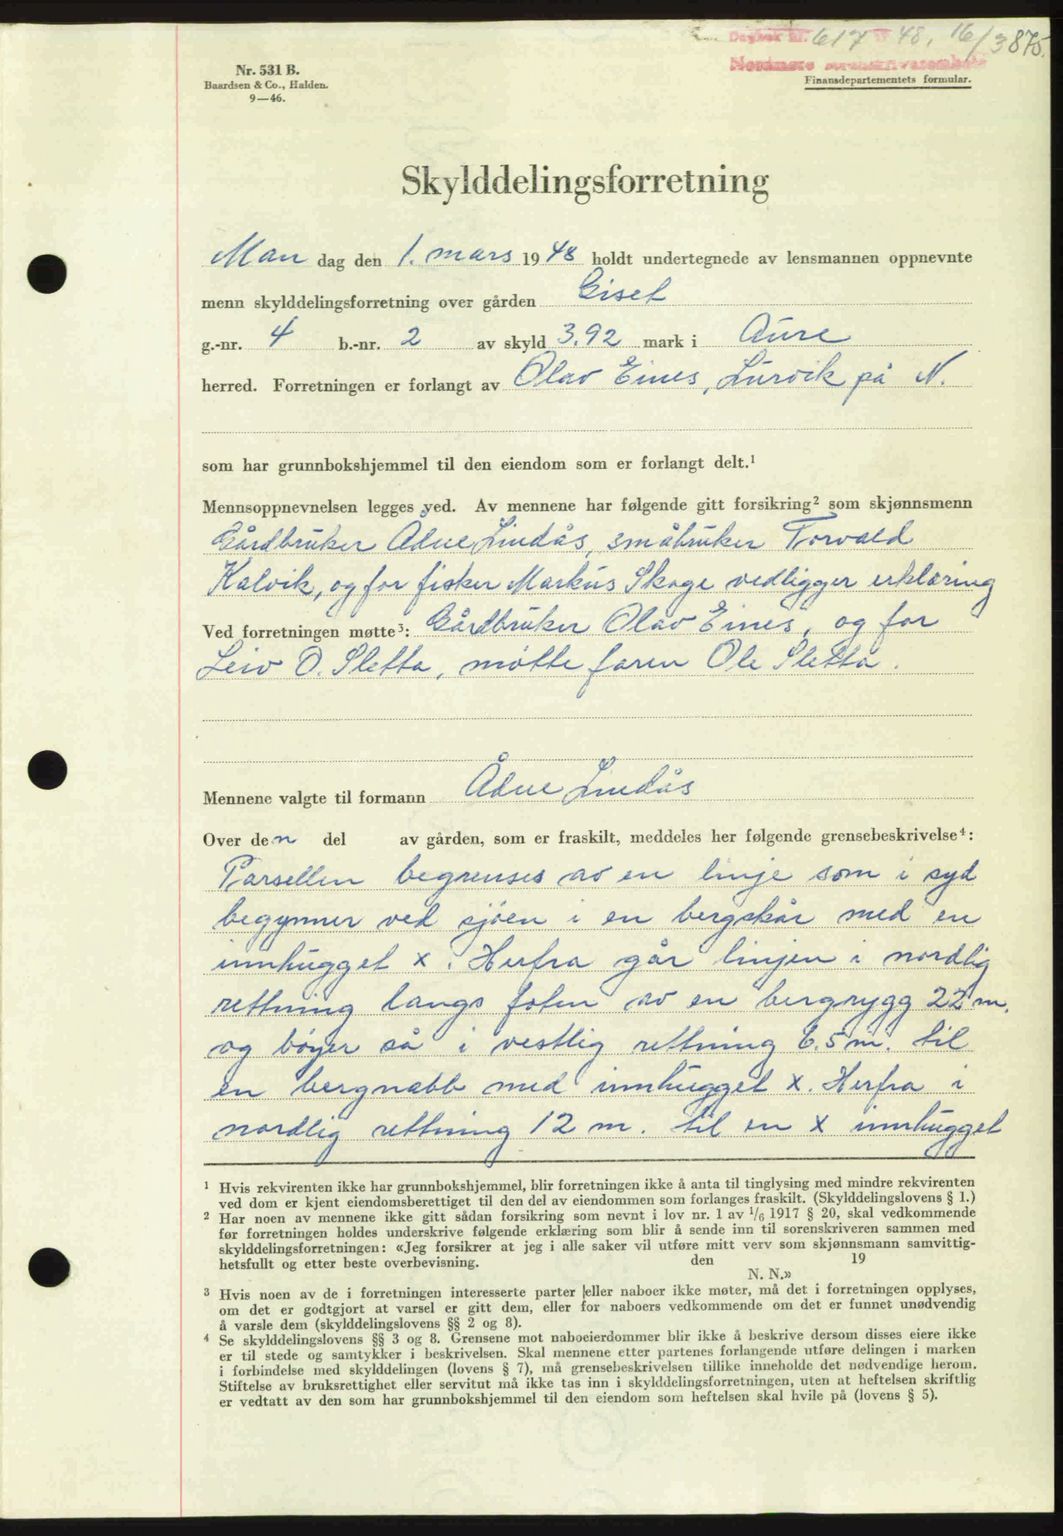 Dagbok nr. 617 1948, 16/3 875.
Nordmøre sorenskriverembete
Nr. 531 B.
Baardsen & Co., Halden.
9—46.
Finansdepartementets formular.
Skylddelingsforretning
Man dag den 1. mars 1948 holdt undertegnede av lensmannen oppnevnte
menn skylddelingsforretning over gården Giset
g.-nr. 4 b.-nr. 2 av skyld 3.92 mark i Aure
herred. Forretningen er forlangt av Olav Eines, Lurvik på N.
som har grunnbokshjemmel til den eiendom som er forlangt delt.¹
Mennsoppnevnelsen legges ved. Av mennene har følgende gitt forsikring² som skjønnsmenn
Gårdbruker Adne Lindås, småbruker Torvald
Kalvik, og for fisker Markus Skoge vedligger erklæring
Ved forretningen møtte³: Gårdbruker Olav Eines, og for
Leiv O. Sletta, møtte faren Ole Sletta.
Mennene valgte til formann Ådne Lindås
Over den del av gården, som er fraskilt, meddeles her følgende grensebeskrivelse⁴:
Parsellen begrenses av en linje som i syd
begynner ved sjøen i en bergskår med en
innhugget x. Herfra går linjen i nordlig
rettning langs foten av en bergrygg 22 m.
og bøyer så i vestlig rettning 6.5 m. til
en bergnabb med innhugget x. Herfra i
nordlig rettning 12 m. til en x innhugget
¹ Hvis rekvirenten ikke har grunnbokshjemmel, blir forretningen ikke å anta til tinglysing med mindre rekvirenten
ved dom er kjent eiendomsberettiget til den del av eiendommen som forlanges fraskilt. (Skylddelingslovens § 1.)
² Har noen av mennene ikke gitt sådan forsikring som nevnt i lov nr. 1 av 1/6 1917 § 20, skal vedkommende
før forretningen holdes underskrive følgende erklæring som blir å sende inn til sorenskriveren sammen med
skylddelingsforretningen: «Jeg forsikrer at jeg i alle saker vil utføre mitt verv som skjønnsmann samvittig-
hetsfullt og etter beste overbevisning. den 19
N. N.»
³ Hvis noen av de i forretningen interesserte parter eller naboer ikke møter, må det i forretningen opplyses,
om det er godtgjort at varsel er gitt dem, eller for naboers vedkommende om det er funnet unødvendig
å varsle dem (skylddelingslovens §§ 2 og 8).
⁴ Se skylddelingslovens §§ 3 og 8. Grensene mot naboeierdommer blir ikke å beskrive dersom disses eiere ikke
er til stede og samtykker i beskrivelsen. Skal mennene etter partenes forlangende utføre delingen i marken
i forbindelse med skylddelingen (lovens § 7), må grensebeskrivelsen tillike inneholde det nødvendige herom.
Stiftelse av bruksrettighet eller servitut må ikke tas inn i skylddelingsforretningen, uten at heftelsen skriftlig
er vedtatt av den som har grunnbokshjemmel til den eiendom som heftelsen skal hvile på (lovens § 5).